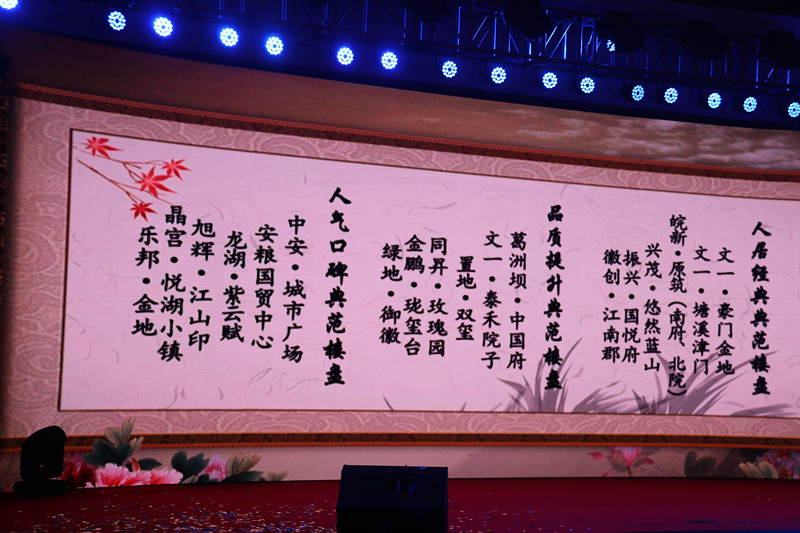 人居经典典范楼盘
文一·豪门金地
文一·塘溪津门
皖新·原筑（南府、北院）
兴茂·悠然蓝山
振兴·国悦府
徽创·江南郡
品质提升典范楼盘
葛洲坝·中国府
文一·泰禾院子
置地·双玺
同昇·玫瑰园
金鹏·珑玺台
绿地·御徽
人气口碑典范楼盘
中安·城市广场
安粮国贸中心
龙湖·紫云赋
旭辉·江山印
晶宫·悦湖小镇
乐邦·金地